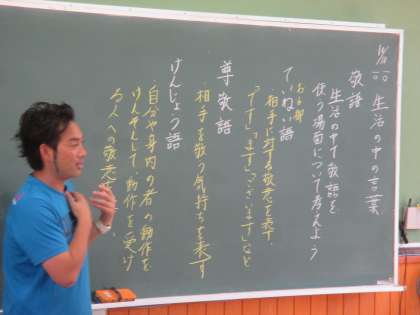 生活の中の言葉
敬語
生活の中で敬語を
使う場面について考えよう
ていねい語
相手に対する敬意を表す
「です」「ます」「ございます」など
尊敬語
相手を敬う気持ちを表す
けんじょう語
自分や身内の者の動作を
けんそんして、動作を受け
る人への敬意